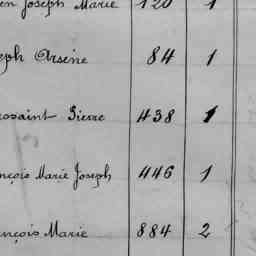 en Joseph Marie 120 1
eph Arsène 84 1
oussaint Pierre 438 1
nçois Marie Joseph 446 1
nçois Marie 884 2